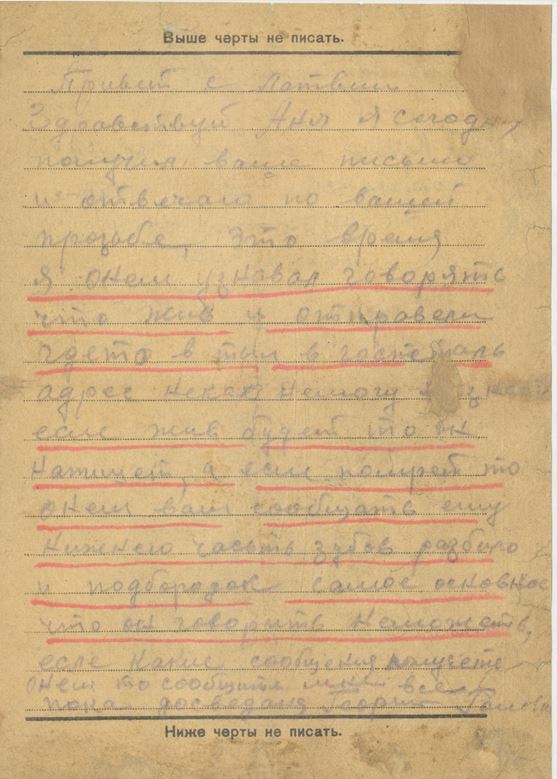 Выше черты не писать.
Привет с Латвии
Здравствуй Аня я сегодня
получил ваше письмо
и отвечаю по вашей
прозьбе, это время
я онем узнавал говорять
что жив и отправели
гдето в тыл в госпеталь
адрес некак немогу
если жив будет то он
напишет, а если помрет то
онем вам сообщать ему
нижнею часьть зубов разбиро
и подбородок самое основное
что он говорить неможеть,
если какие сообщения получете
онем то сообщите мне все
пока досведаня Георгий
Ниже черты не писать.